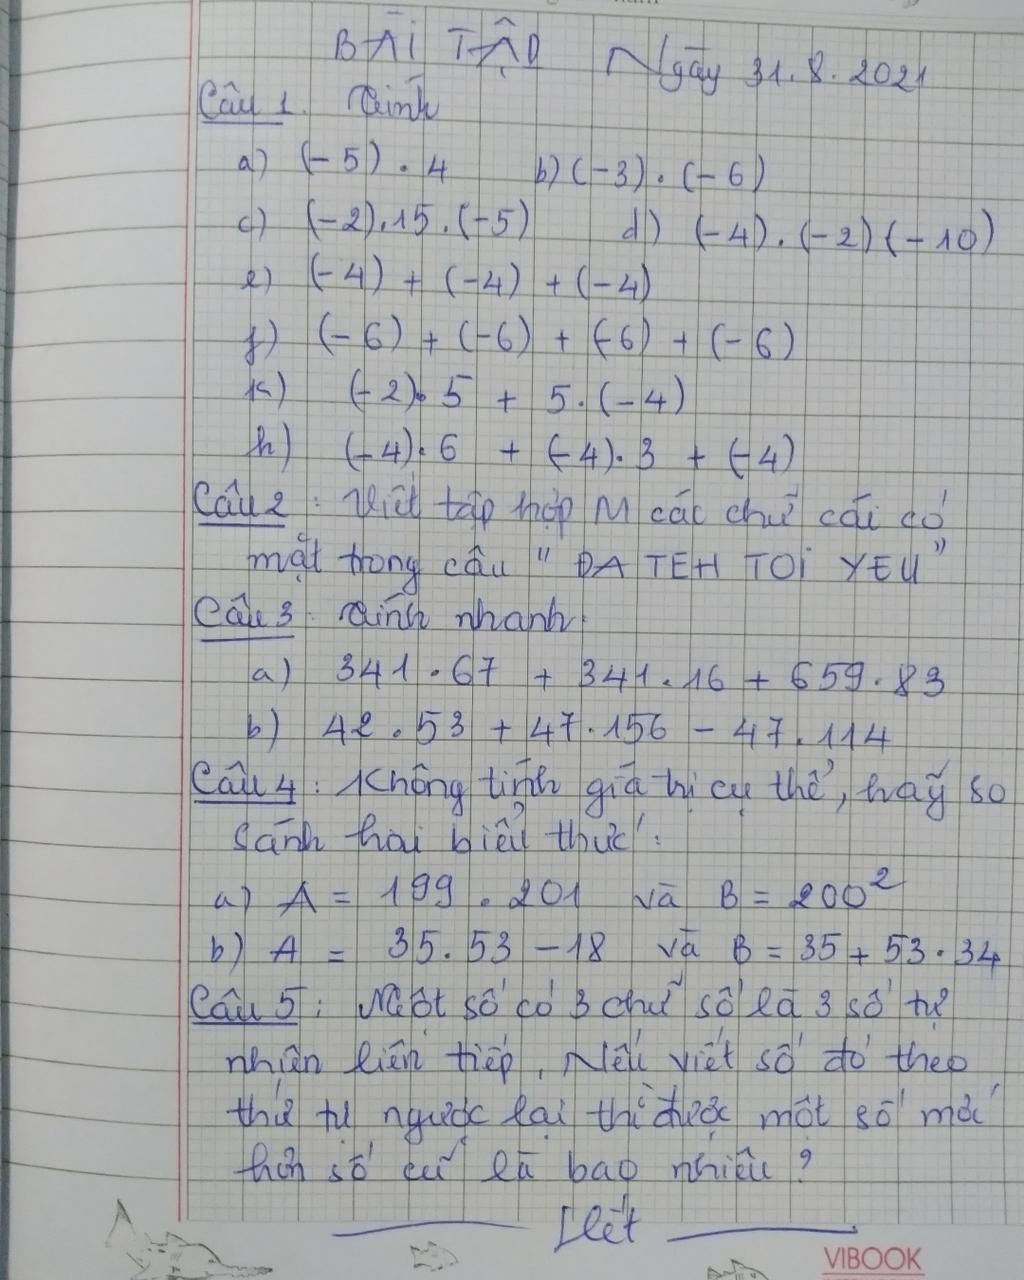 BÀI TẬP Ngày 31.8.2021
Câu 1. Tính
a) (-5) . 4 b) (-3) . (-6)
c) (-2).15.(-5) d) (-4).(-2)(-10)
e) (-4) + (-4) + (-4)
f) (-6) + (-6) + (-6) + (-6)
k) (-2). 5 + 5.(-4)
h) (-4).6 + (-4).3 + (-4)
Câu 2 : Viết tập hợp M các chữ cái có
mặt trong câu " ĐA TEH TOI YEU "
Câu 3 : Tính nhanh.
a) 341 . 67 + 341.16 + 659.83
b) 42 . 53 + 47.156 - 47.114
Câu 4 : Không tính giá trị cụ thể, hãy so
sánh hai biểu thức :
a) A = 199 . 201 và B = 200²
b) A = 35.53 - 18 và B = 35 + 53.34
Câu 5 : Một số có 3 chữ số là 3 số tự
nhiên liên tiếp. Nếu viết số đó theo
thứ tự ngược lại thì được một số mới
hơn số cũ là bao nhiêu ?
Hết
VIBOOK